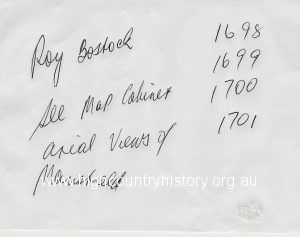 Roy Bostock 1698
1699
See Map Cabinet 1700
arial Views of 1701
Mansfield
www.highcountryhistory.org.au